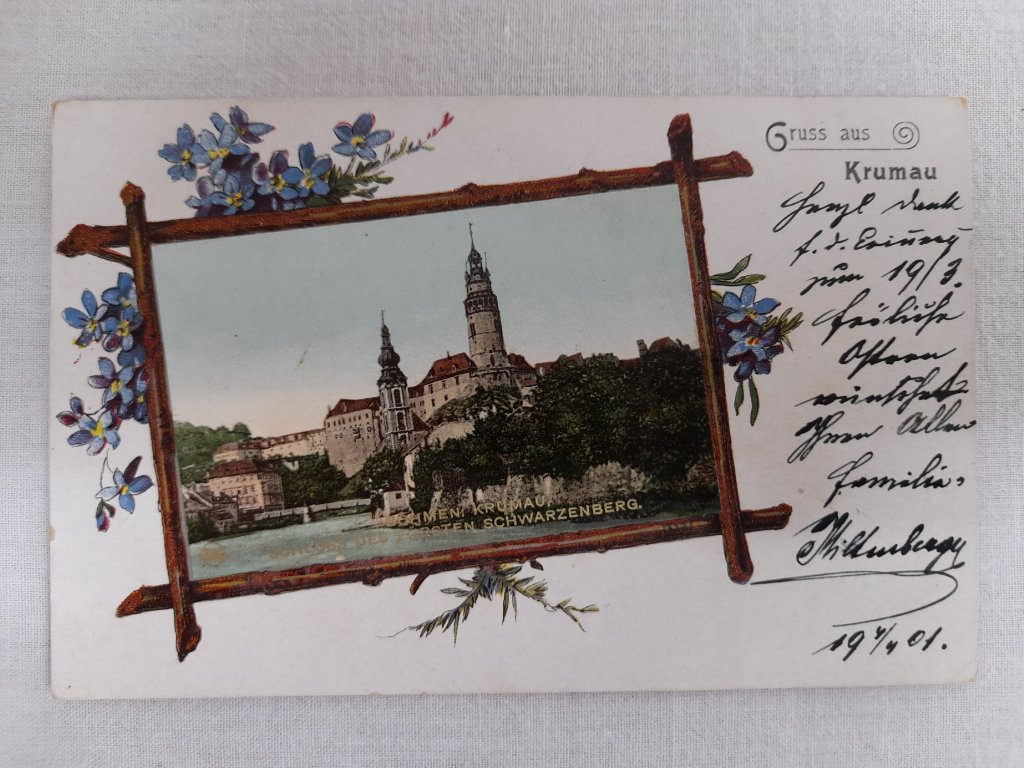 Gruss aus
Krumau
BÖHMEN: KRUMAU,
SCHLOSS DES FÜRSTEN SCHWARZENBERG.
Herzl Dank
f. d. Erinrg
zum 19/3.
fröhliche
Ostern
wünschet
Ihnen Allen
Familie
Miltenberger
19 4/4 01.